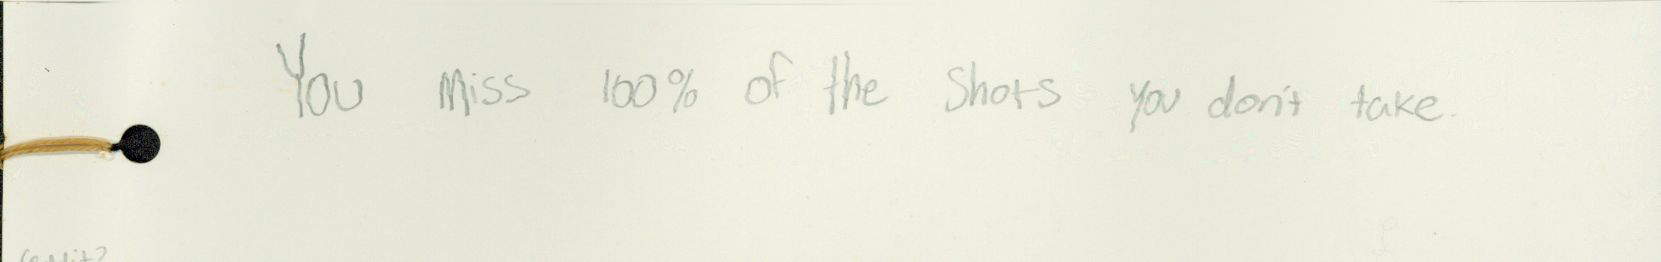 You Miss 100% of the Shots you don't take.